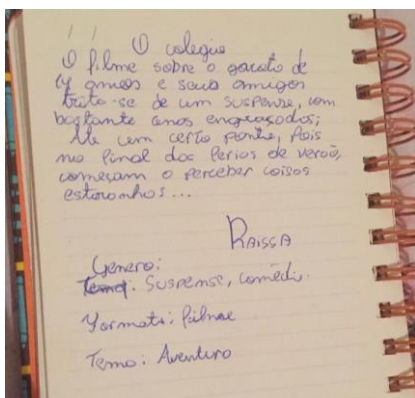 / / O colegio
O filme sobre o garoto de
14 anos e seus amigos
trata-se de um suspense, com
bastante cenas engraçados;
Até um certo ponto, pois
no final das ferias de verão,
começam a perceber coisas
estranhas...
RAISSA
Genero:
Tema: Suspense, comédia.
Formato: filme
Tema: Aventura